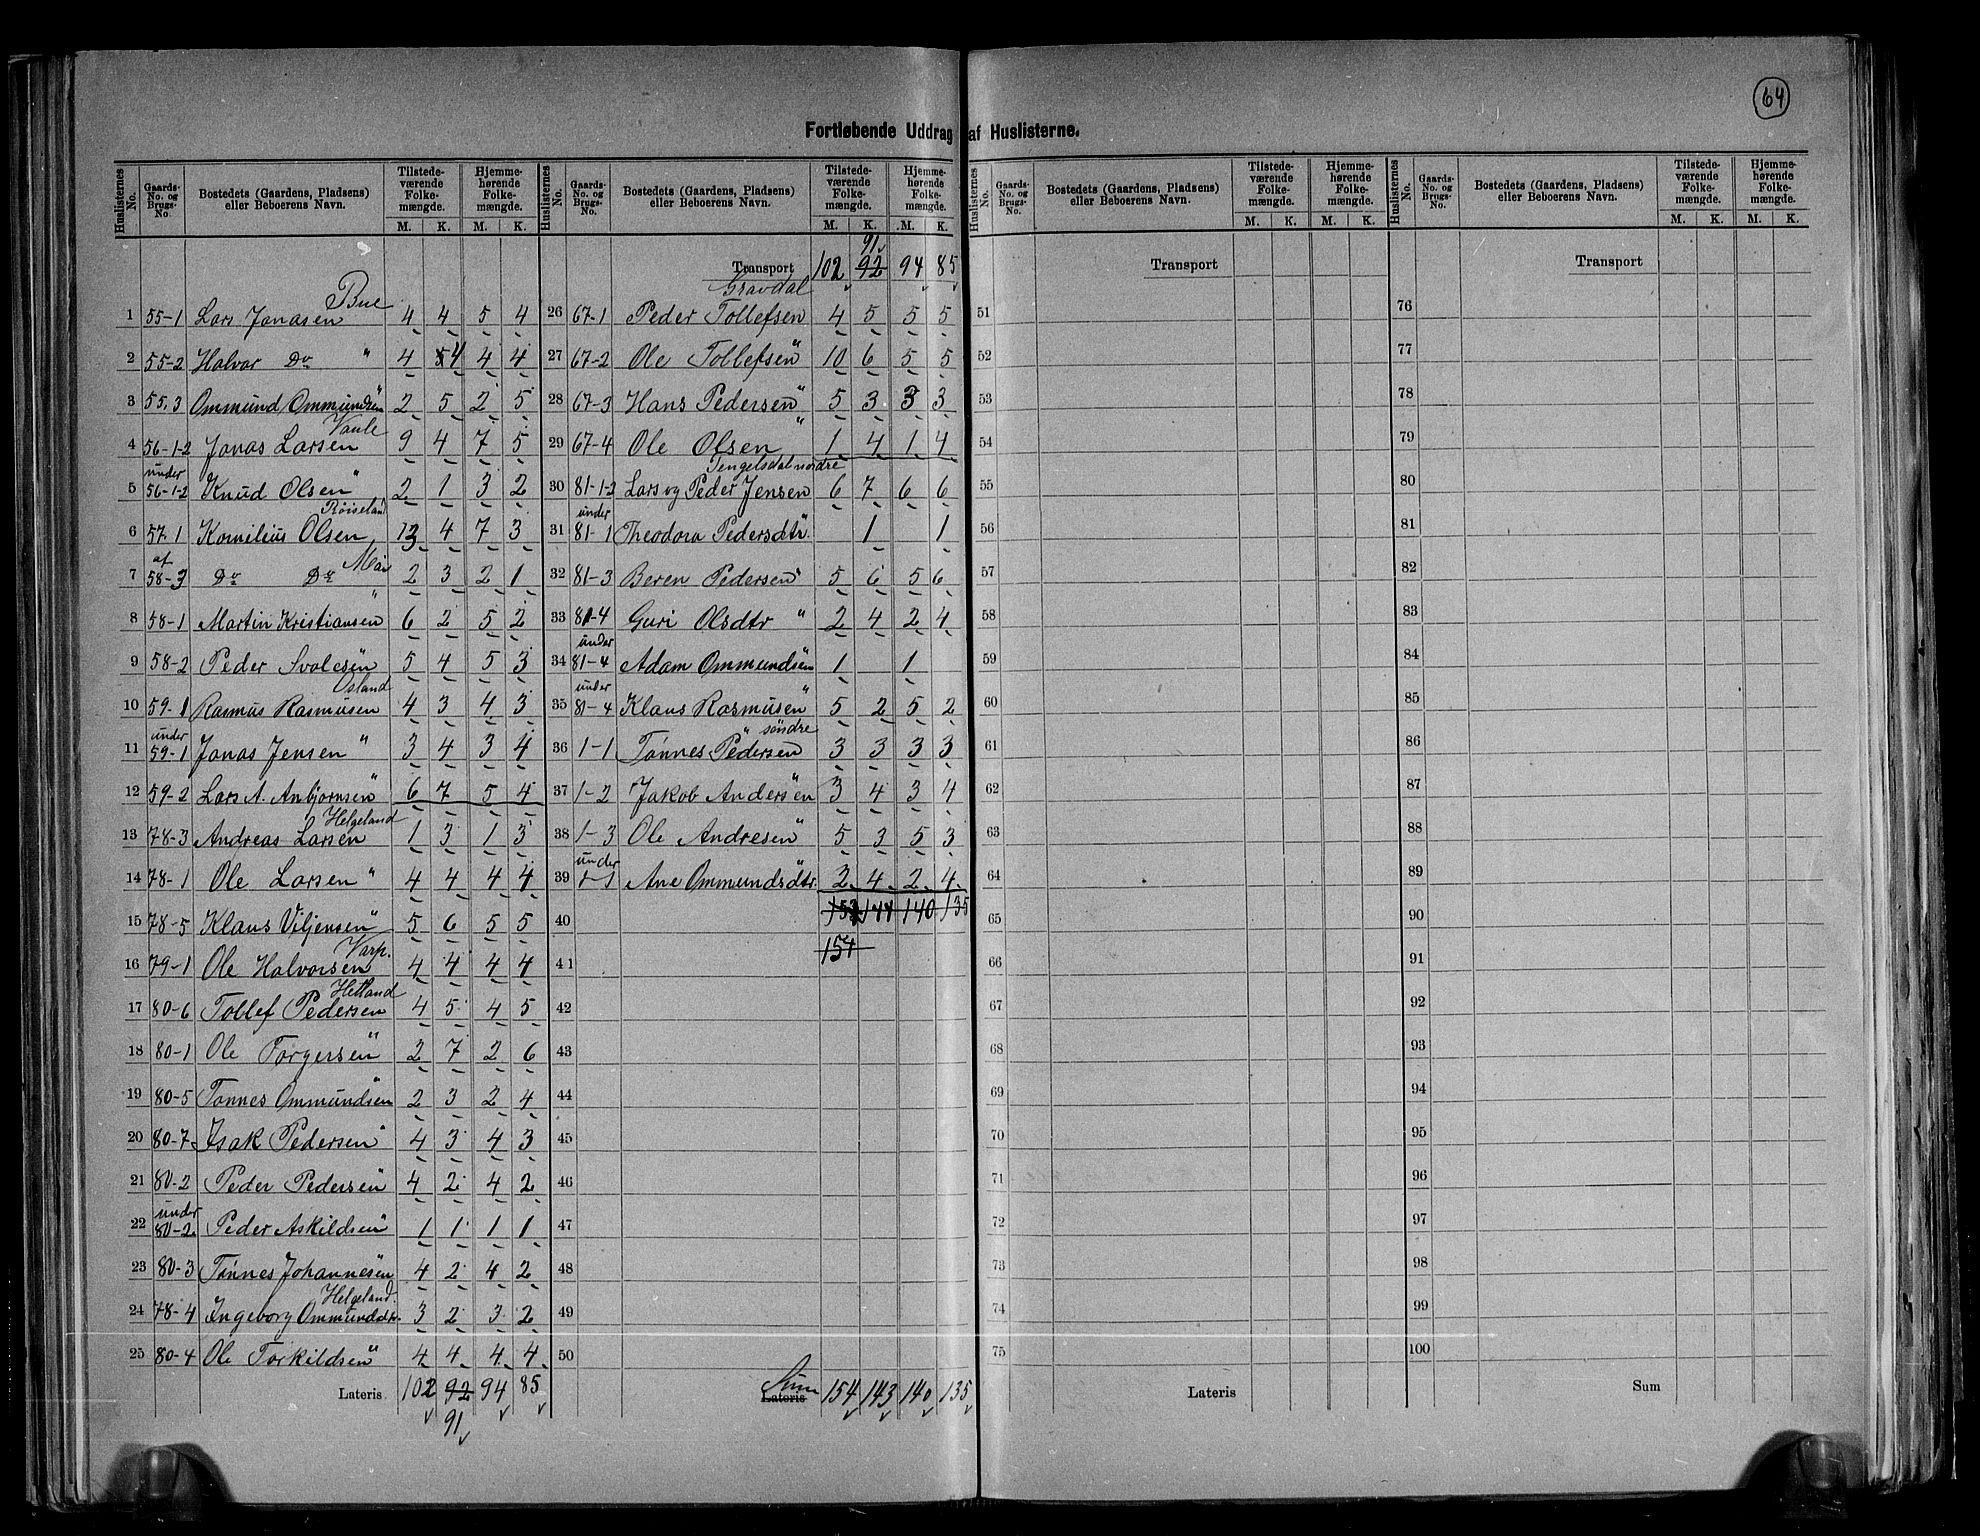 64
Fortløbende Uddrag af Huslisterne.
Huslisternes No. Gaards-No. og Brugs-No. Bostedets (Gaardens, Pladsens) eller Beboerens Navn. Tilstedeværende Folkemængde. M. K. Hjemmehørende Folkemængde. M. K.
Bue
1 55-1 Lars Jonasen 4 4 5 4
2 55-2 Halvor Do " 4 5 4 4 4
3 55,3 Ommund Ommundsen " 2 5 2 5
Vaule
4 56-1-2 Jonas Larsen 9 4 7 5
under
5 56-1-2 Knud Olsen " 2 1 3 2
Röiseland
6 57-1 Kornelius Olsen 13 4 7 3
af
7 58-3 Do Do 2 3 2 1
"
8 58-1 Martin Kristiansen 6 2 5 2
9 58-2 Peder Svalesen " 5 4 5 3
Osland
10 59-1 Rasmus Rasmusen 4 3 4 3
under
11 59-1 Jonas Jensen " 3 4 3 4
12 59-2 Lars A. Anbjørnsen " 6 7 5 4
Helgeland
13 78-3 Andreas Larsen 1 3 1 3
14 78-1 Ole Larsen " 4 4 4 4
15 78-5 Klaus Viljensen " 5 6 5 5
Varp.
16 79-1 Ole Halvorsen 4 4 4 4
Hetland
17 80-6 Tollef Pedersen 4 5 4 5
18 80-1 Ole Torgersen " 2 7 2 6
19 80-5 Tønnes Ommundsen " 2 3 2 4
20 80-7 Isak Pedersen " 4 3 4 3
21 80-2 Peder Pedersen " 4 2 4 2
under
22 80-2 Peder Askildsen " 1 1 1 1
23 80-3 Tönnes Johannesen " 4 2 4 2
Helgeland.
24 78-4 Ingeborg Ommundsdtr. 3 2 3 2
25 80-4 Ole Torkildsen " 4 4 4 4
Lateris 102 92 94 85
91
Huslisternes No. Gaards-No. og Brugs-No. Bostedets (Gaardens, Pladsens) eller Beboerens Navn. Tilstedeværende Folkemængde. M. K. Hjemmehørende Folkemængde. M. K.
91
Transport 102 92 94 85
Gravdal
26 67-1 Peder Tollefsen 4 5 5 5
27 67-2 Ole Tollefsen " 10 6 5 5
28 67-3 Hans Pedersen " 5 3 3 3
29 67-4 Ole Olsen " 1 4 1 4
Tengelsdal nordre
30 81-1-2 Lars og Peder Jensen 6 7 6 6
under
31 81-1 Theodora Pedersdtr. " 1 1
32 81-3 Beren Pedersen " 5 6 5 6
33 81-4 Guri Olsdtr " 2 4 2 4
under
34 81-4 Adam Ommundsen " 1 1
under
35 81-4 Klaus Rasmusen " 5 2 5 2
" söndre
36 1-1 Tønnes Pedersen 3 3 3 3
37 1-2 Jakob Andersen " 3 4 3 4
38 1-3 Ole Andresen " 5 3 5 3
under
39 1-1 Ane Ommundsdtr. " 2 4 2 4
40 153 144 140 135
154
41
42
43
44
45
46
47
48
49
50
Sum Lateris 154 143 140 135
Huslisternes No. Gaards-No. og Brugs-No. Bostedets (Gaardens, Pladsens) eller Beboerens Navn. Tilstedeværende Folkemængde. M. K. Hjemmehørende Folkemængde. M. K.
Transport
51
52
53
54
55
56
57
58
59
60
61
62
63
64
65
66
67
68
69
70
71
72
73
74
75
Lateris
Huslisternes No. Gaards-No. og Brugs-No. Bostedets (Gaardens, Pladsens) eller Beboerens Navn. Tilstedeværende Folkemængde. M. K. Hjemmehørende Folkemængde. M. K.
Transport
76
77
78
79
80
81
82
83
84
85
86
87
88
89
90
91
92
93
94
95
96
97
98
99
100
Sum